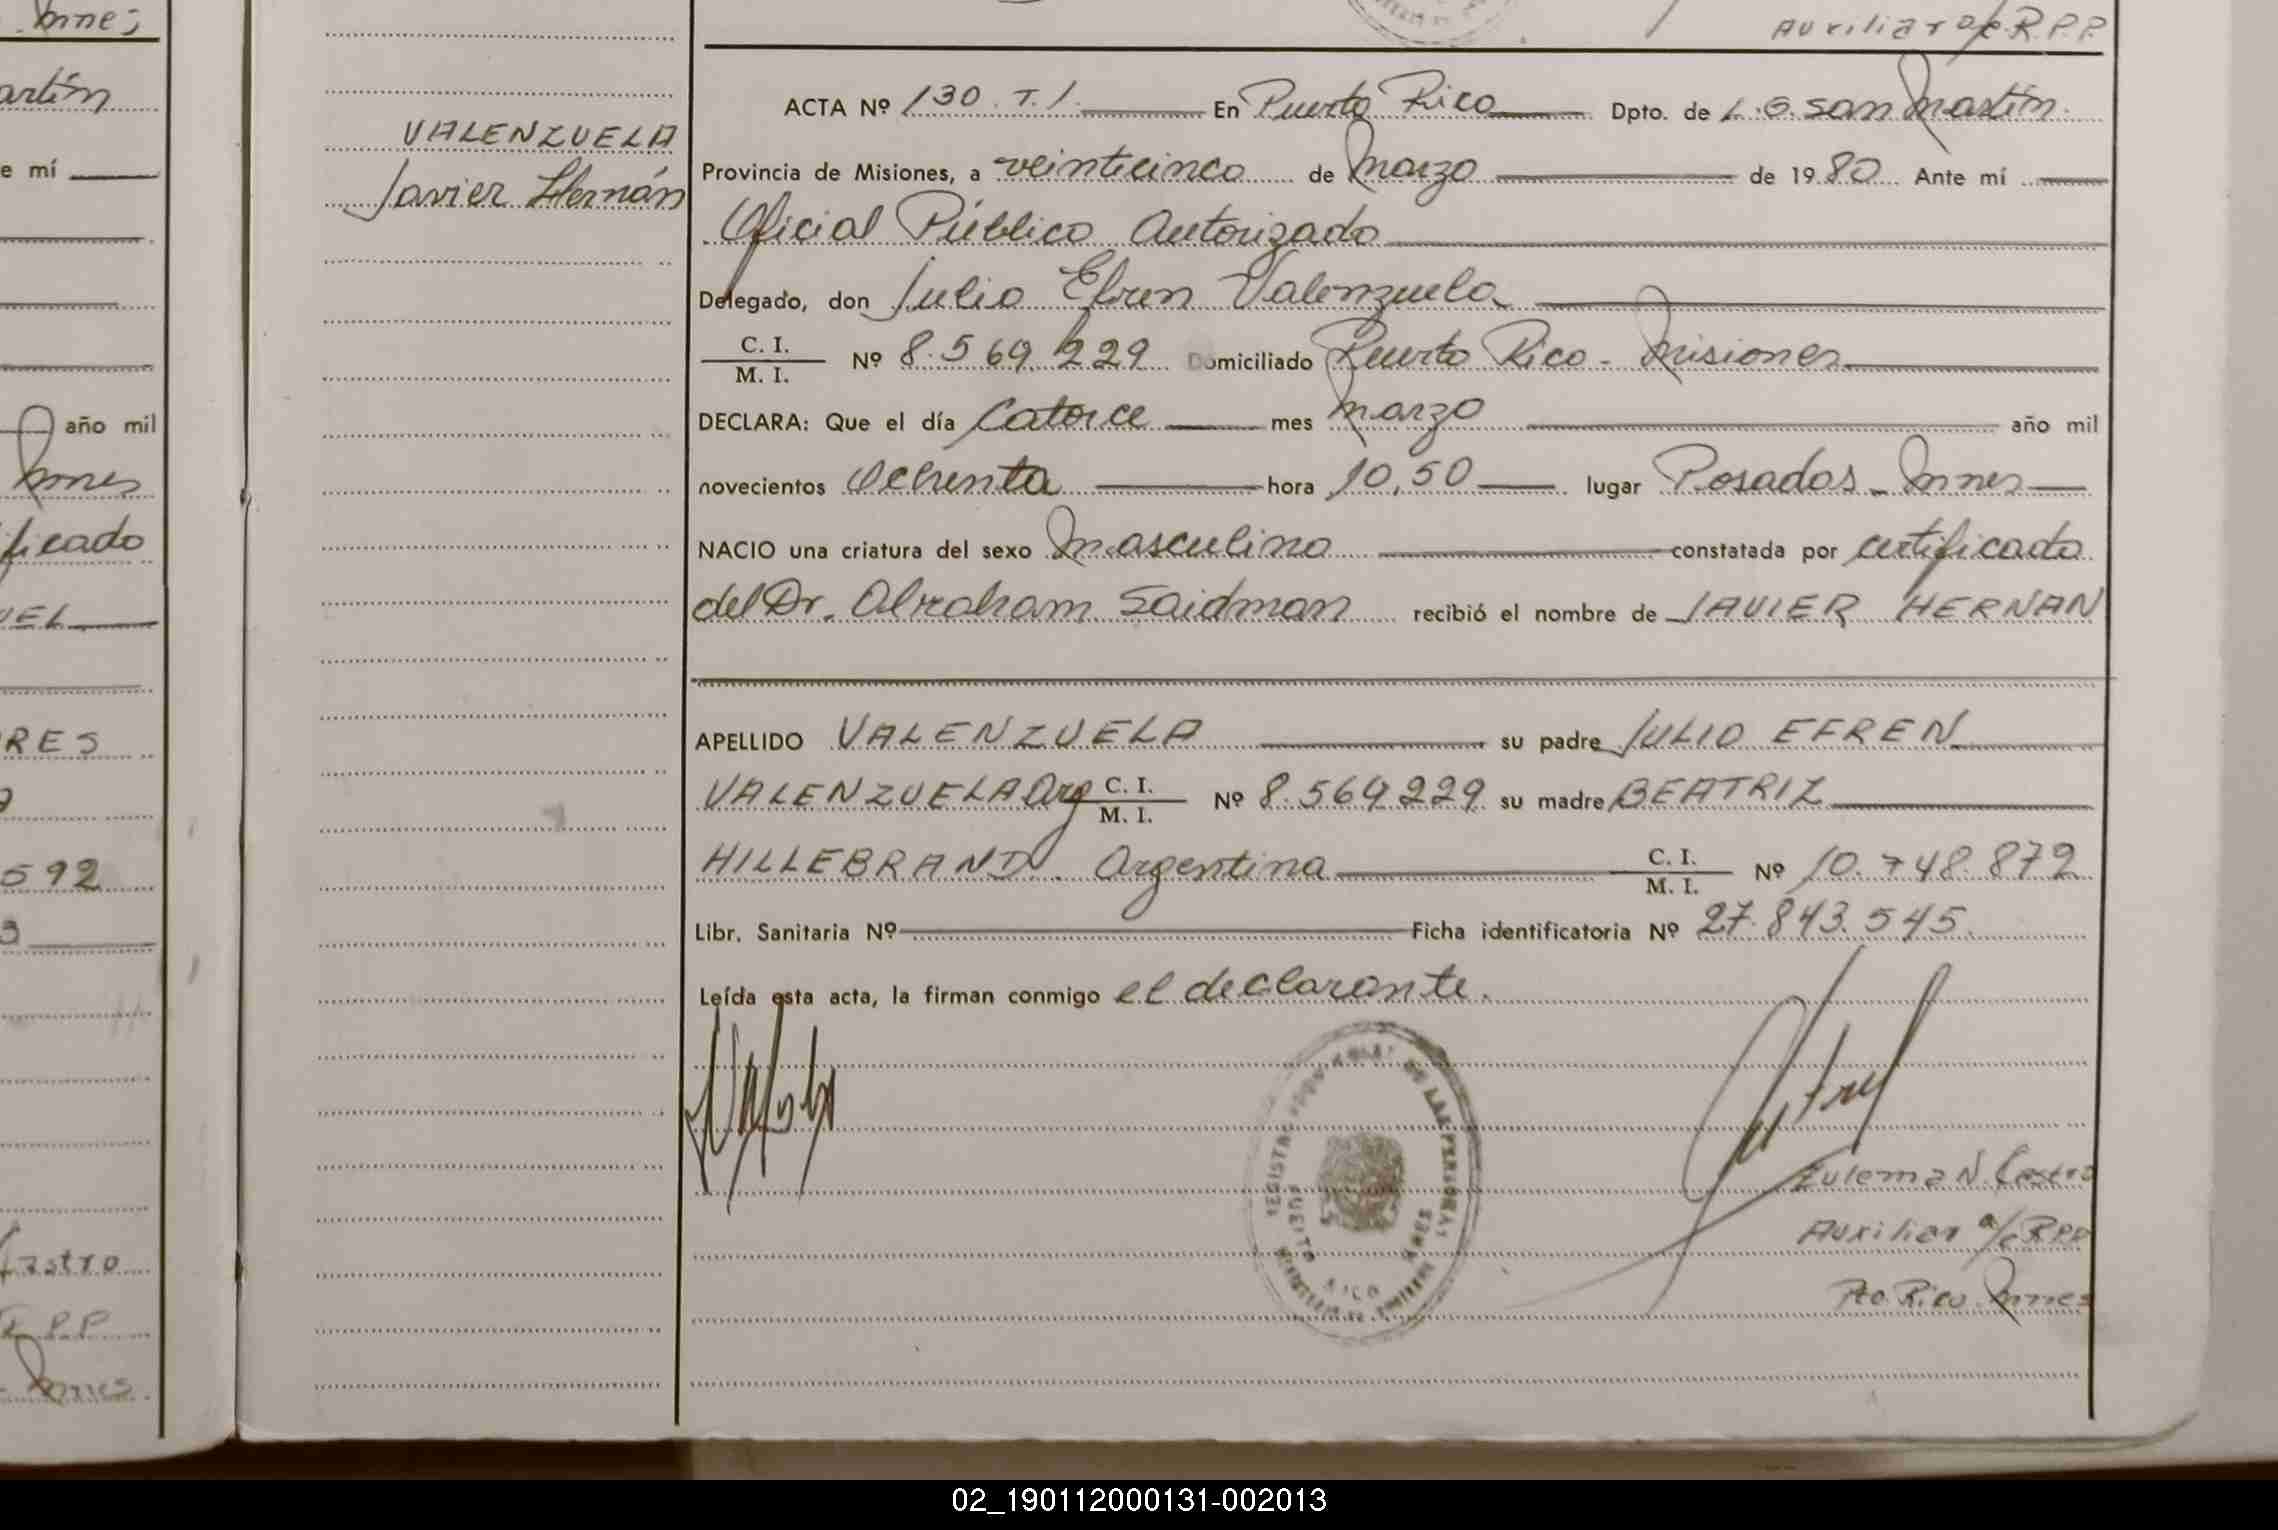 . Mnes
Auxiliar a/c R.P.P.
artín
ACTA Nº 130. T.1. En Puerto Rico Dpto. de L.G. San Martín.
VALENZUELA
e mí
Provincia de Misiones, a veinticinco de Marzo de 1980. Ante mí
Javier Hernán
Oficial Público Autorizado
Delegado, don Julio Efren Valenzuela
C. I. / M. I. Nº 8.569.229 Domiciliado Puerto Rico - Misiones
año mil
DECLARA: Que el día Catorce mes Marzo año mil
Mnes
novecientos Ochenta hora 10,50 lugar Posadas - Mnes
ficado
NACIO una criatura del sexo Masculino constatada por certificado
UEL
del Dr. Abraham Saidman recibió el nombre de JAVIER HERNAN
RES
APELLIDO VALENZUELA su padre JULIO EFREN
VALENZUELA Arg C. I. / M. I. Nº 8.569.229 su madre BEATRIZ
592
HILLEBRAND. Argentina C. I. / M. I. Nº 10.748.872
3
Libr. Sanitaria Nº Ficha identificatoria Nº 27.843.545.
Leída esta acta, la firman conmigo el declarante.
DE LAS PERSONAS
PUERTO RICO
Zulema N. Castro
Castro
Auxiliar a/c R.P.P
P.P
Pto. Rico Mnes
Mnes.
02_190112000131-002013